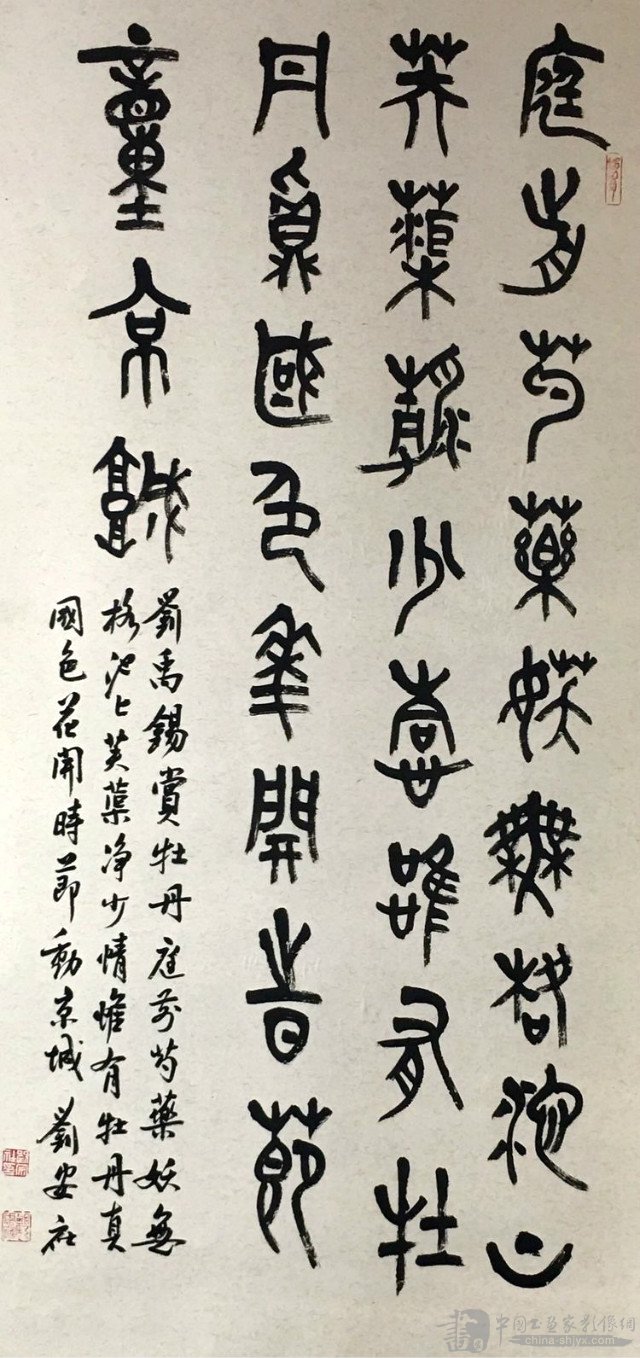 庭前芍藥妖無格池上
芙蕖靜少情唯有牡
丹真國色華開時節
動京城
劉禹錫賞牡丹庭前芍藥妖無
格池上芙蕖净少情惟有牡丹真
國色花開時節動京城 劉安社
中国书画家影像網
china-shjyx.com